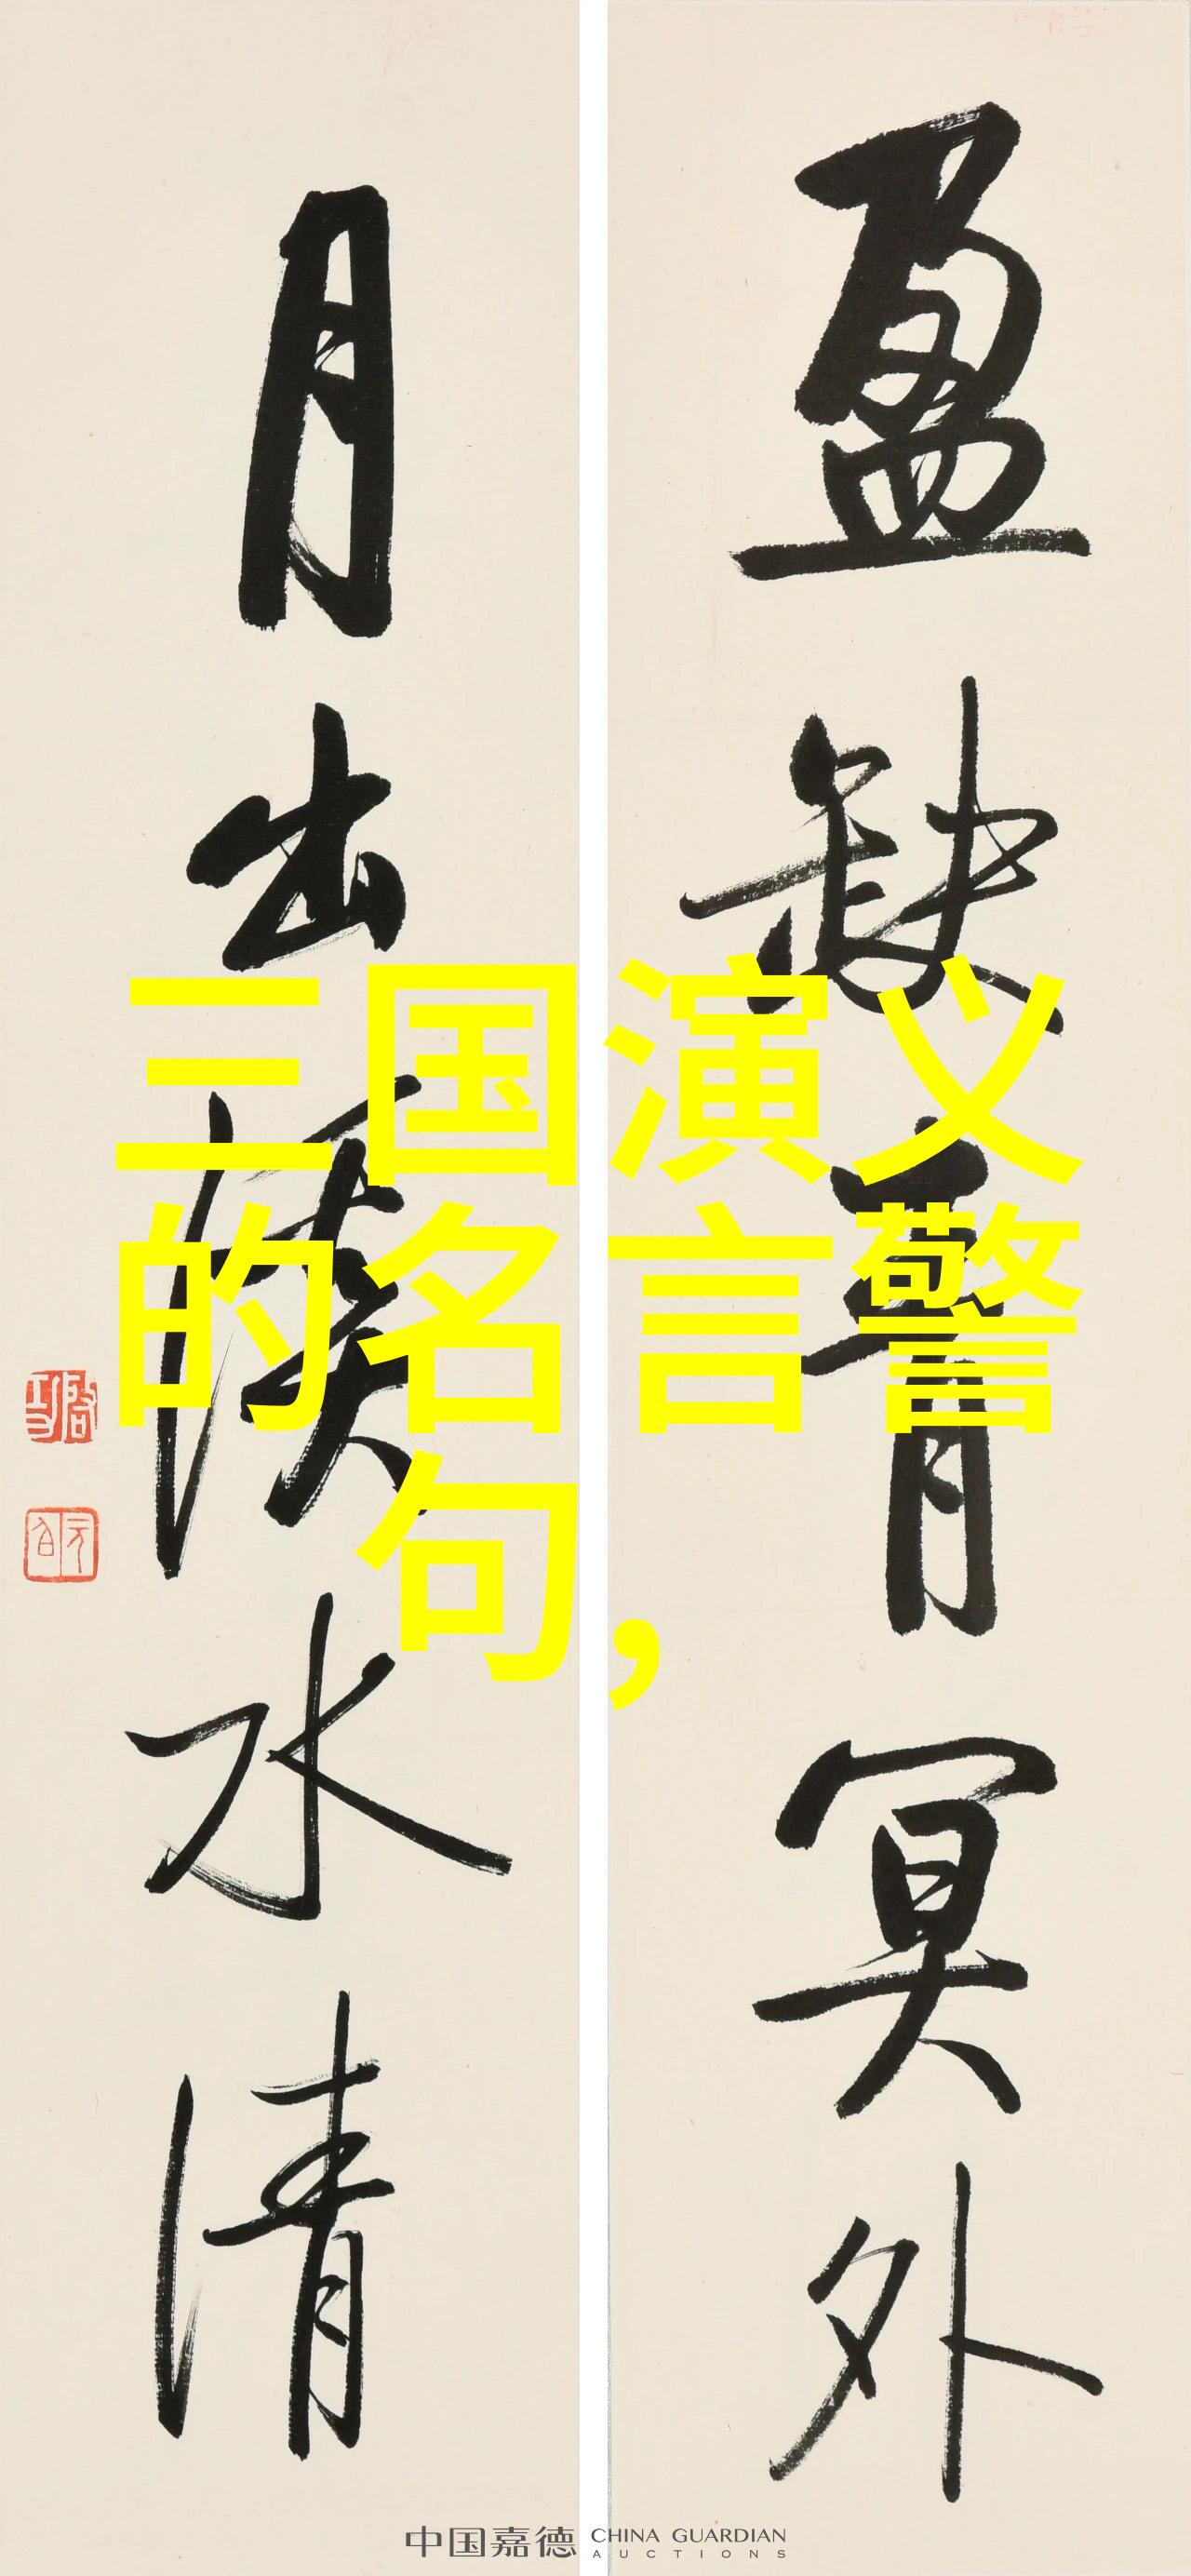 盈缺青冥外
月出湙水清
三国演义
的名言警
句,
中国嘉德 CHINA GUARDIAN
AUCTIONS